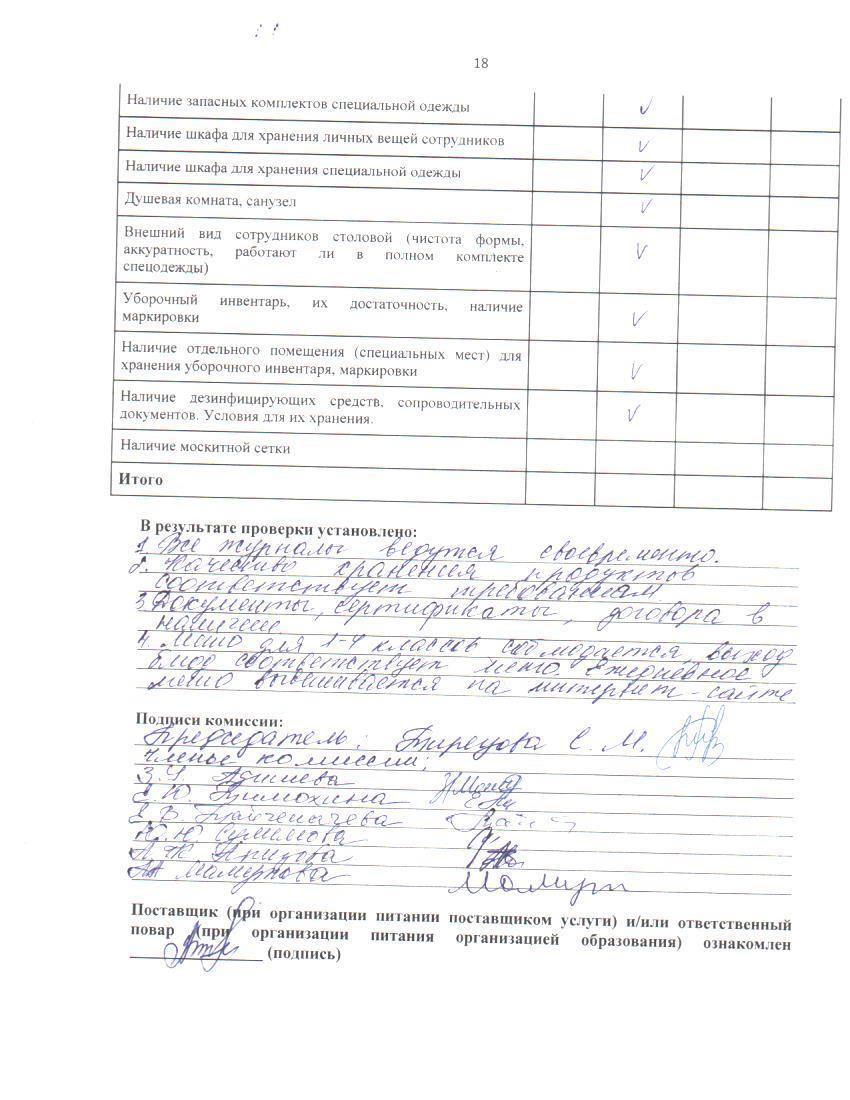 18
Наличие запасных комплектов специальной одежды
Наличие шкафа для хранения личных вещей сотрудников
Наличие шкафа для хранения специальной одежды
Душевая комната, санузел
Внешний вид сотрудников столовой (чистота формы,
аккуратность, работают ли в полном комплекте
спецодежды)
Уборочный инвентарь, их достаточность, наличие
маркировки
Наличие отдельного помещения (специальных мест) для
хранения уборочного инвентаря, маркировки
Наличие дезинфицирующих средств, сопроводительных
документов. Условия для их хранения.
Наличие москитной сетки
Итого
В результате проверки установлено:
1. Все журналы ведутся своевременно.
2. Качество хранения продуктов
соответствует требованиям
3. Документы, сертификаты, договора в
наличии.
4. Меню для 1-4 классов соблюдается, выход
блюд соответствует меню. Ежедневное
меню вывешивается на интернет-сайте
Подписи комиссии:
Председатель: С. М.
Члены комиссии:
Поставщик (при организации питании поставщиком услуги) и/или ответственный
повар (при организации питания организацией образования) ознакомлен
(подпись)